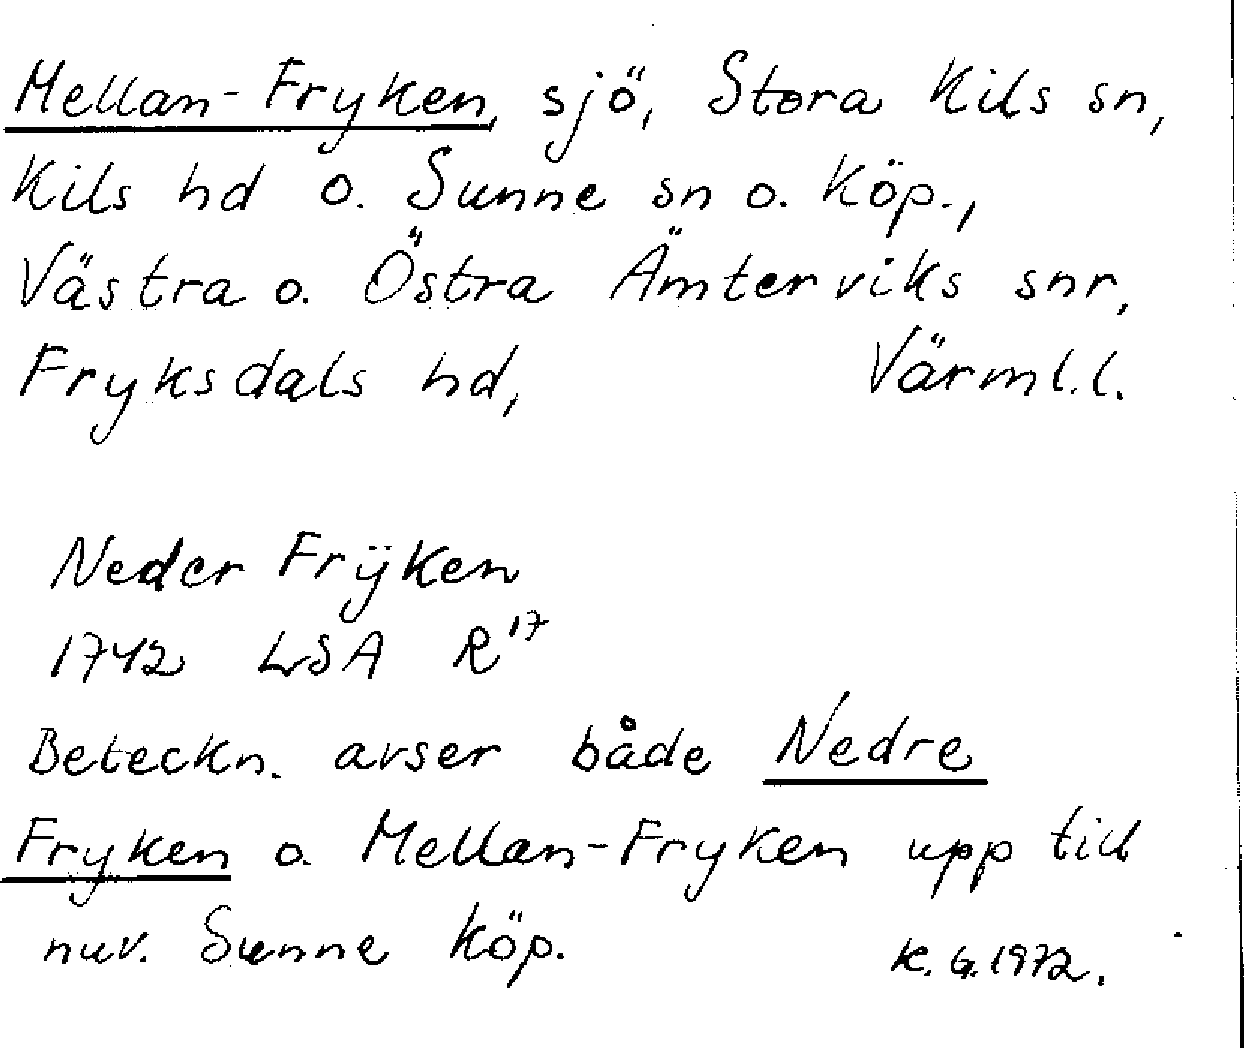 Mellan-Fryken, sjö, Stora Kils sn,
Kils hd o. Sunne sn o. Köp.,
Västra o. Östra Ämterviks snr,
Fryksdals hd, Värml.l.
Neder Frÿken
1742 LSA R 17
Beteckn. avser både Nedre
Fryken o. Mellan-Fryken upp till
nuv. Sunne Köp. K.G.1972.